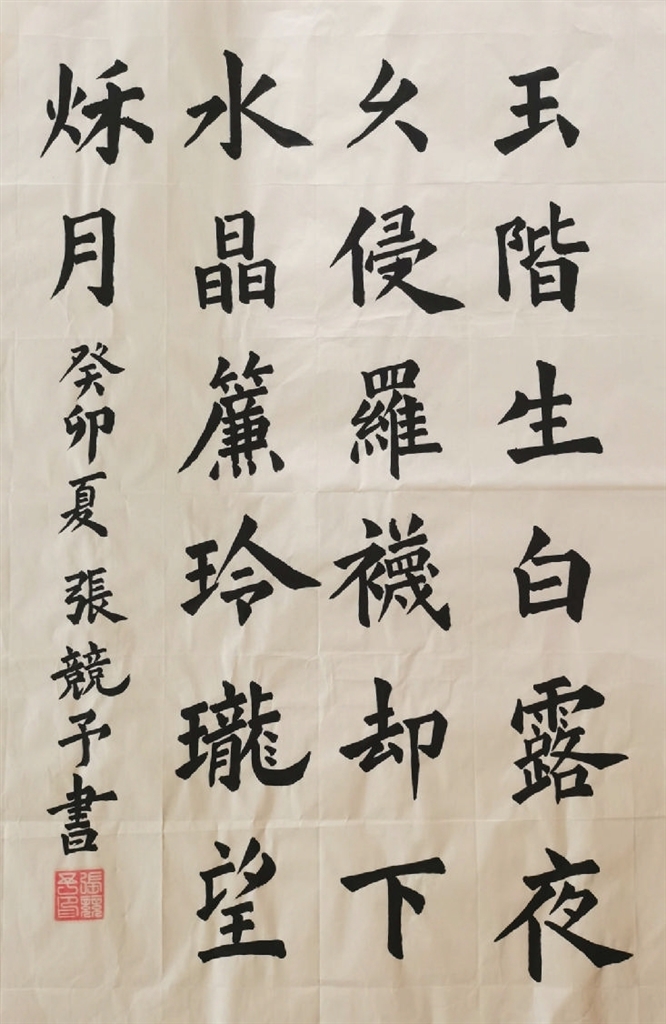 玉階生白露夜
久侵羅襪却下
水晶簾玲瓏望
秌月
癸卯夏 張競予書